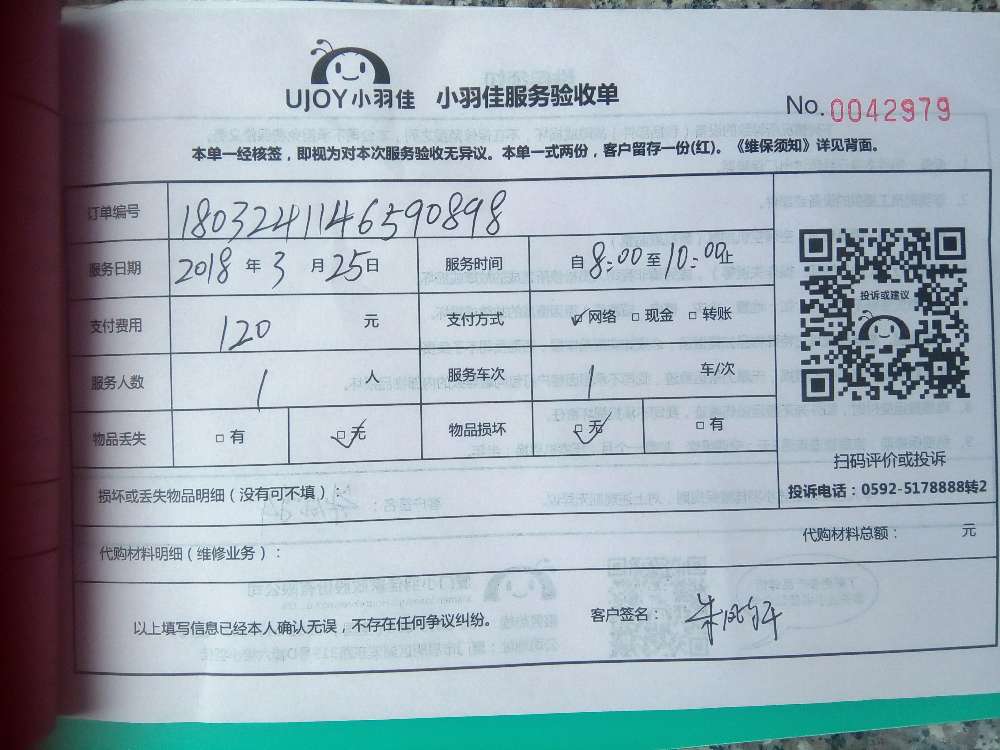 UJOY小羽佳 小羽佳服务验收单
No. 0042979
本单一经核签，即视为对本次服务验收无异议。本单一式两份，客户留存一份(红)。《维保须知》详见背面。
订单编号 1803241146590898
服务日期 2018 年 3 月 25 日 服务时间 自 8:00 至 10:00 止
投诉或建议
支付费用 120 元 支付方式 ☑网络 □现金 □转账
服务人数 1 人 服务车次 1 车/次
物品丢失 □有 ☑无 物品损坏 ☑无 □有
扫码评价或投诉
投诉电话：0592-5178888转2
损坏或丢失物品明细（没有可不填）：
代购材料明细（维修业务）：
代购材料总额： 元
以上填写信息已经本人确认无误，不存在任何争议纠纷。
客户签名：